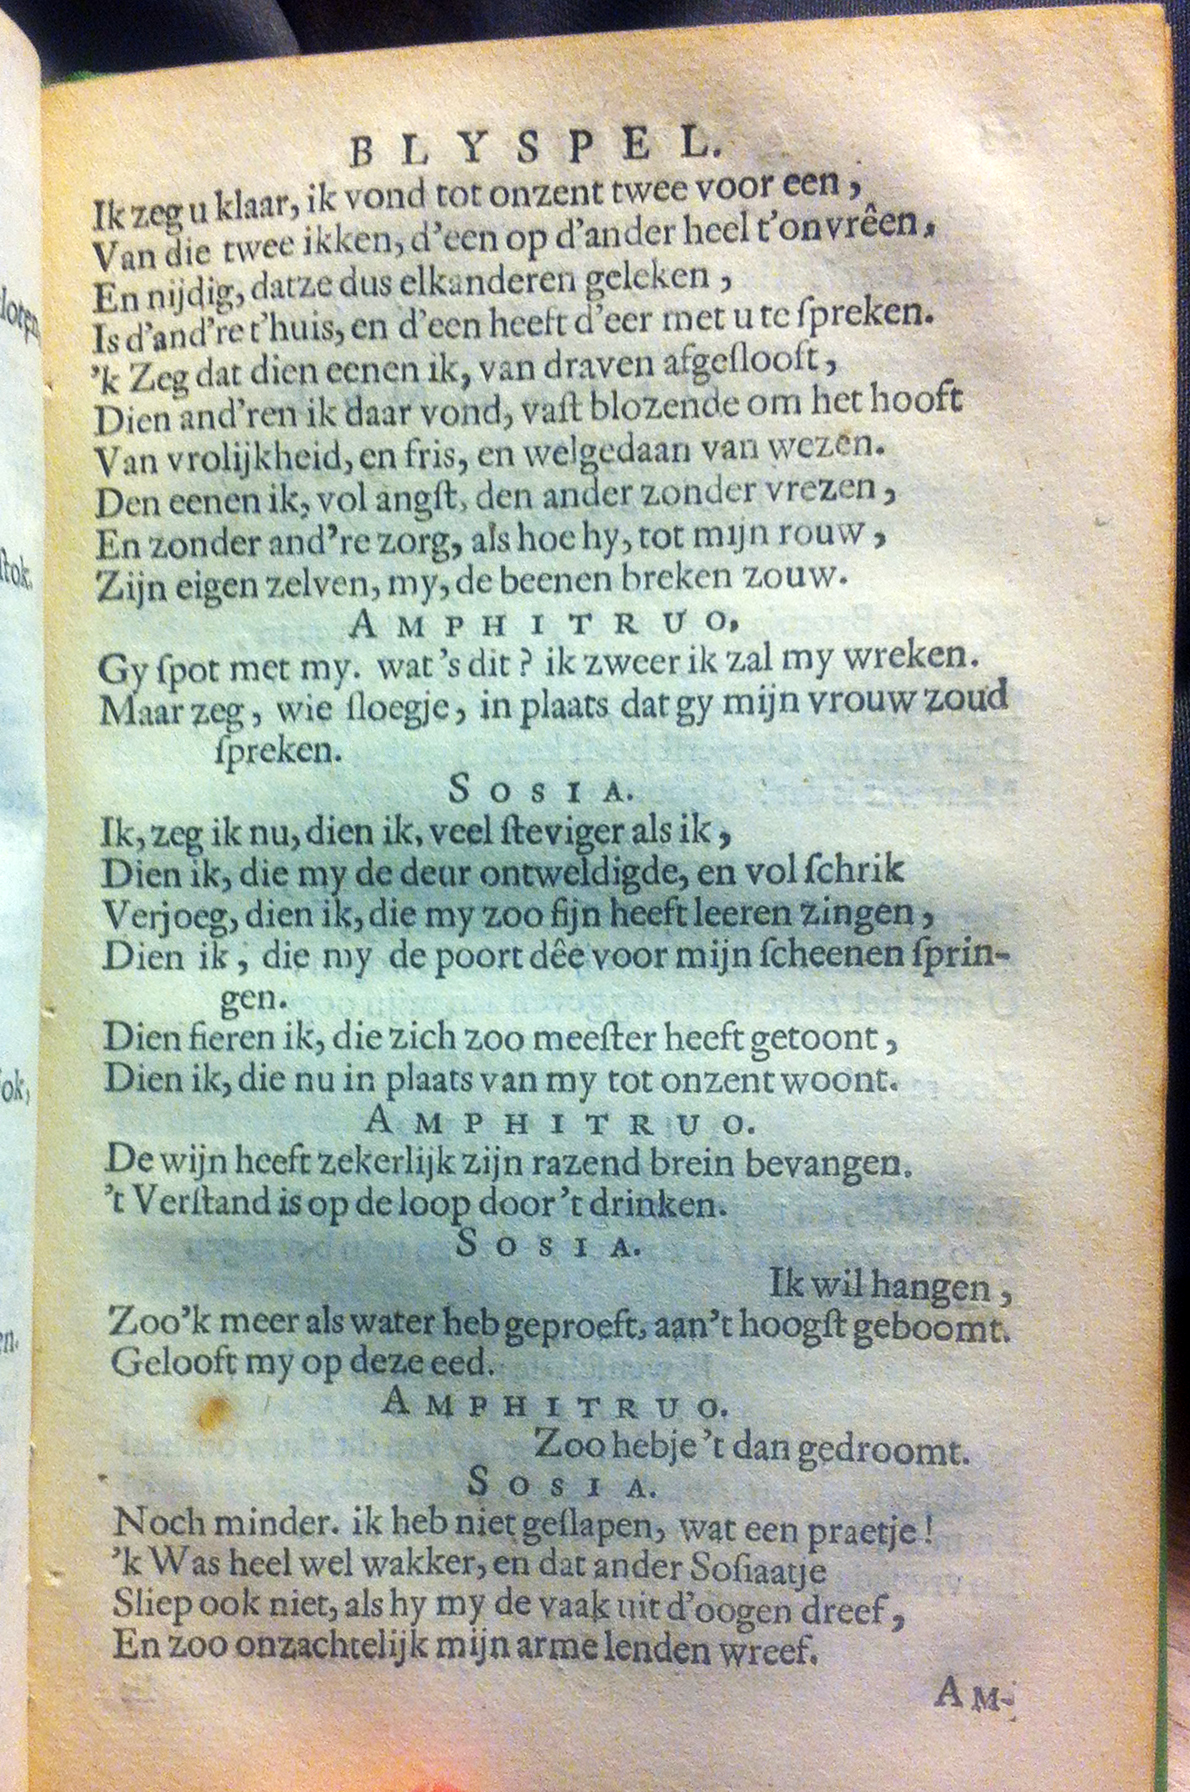 BLYSPEL.
Ik zeg u klaar, ik vond tot onzent twee voor een,
Van die twee ikken, d'een op d'ander heel t'onvrêen,
En nijdig, datze dus elkanderen geleken,
Is d'and're t'huis, en d'een heeft d'eer met u te ſpreken.
'k Zeg dat dien eenen ik, van draven afgeſlooft,
Dien and'ren ik daar vond, vaſt blozende om het hooft
Van vrolijkheid, en fris, en welgedaan van wezen.
Den eenen ik, vol angſt, den ander zonder vrezen,
En zonder and're zorg, als hoe hy, tot mijn rouw,
Zijn eigen zelven, my, de beenen breken zouw.
AMPHITRUO,
Gy ſpot met my. wat 's dit? ik zweer ik zal my wreken.
Maar zeg, wie ſloegje, in plaats dat gy mijn vrouw zoud
ſpreken.
SOSIA.
Ik, zeg ik nu, dien ik, veel ſteviger als ik,
Dien ik, die my de deur ontweldigde, en vol ſchrik
Verjoeg, dien ik, die my zoo fijn heeft leeren zingen,
Dien ik, die my de poort dêe voor mijn ſcheenen ſprin-
gen.
Dien fieren ik, die zich zoo meeſter heeft getoont,
Dien ik, die nu in plaats van my tot onzent woont.
AMPHITRUO.
De wijn heeft zekerlijk zijn razend brein bevangen.
't Verſtand is op de loop door 't drinken.
SOSIA.
Ik wil hangen,
Zoo'k meer als water heb geproeft, aan't hoogſt geboomt.
Gelooft my op deze eed.
AMPHITRUO.
Zoo hebje 't dan gedroomt.
SOSIA.
Noch minder. ik heb niet geſlapen, wat een praetje!
'k Was heel wel wakker, en dat ander Soſiaatje
Sliep ook niet, als hy my de vaak uit d'oogen dreef,
En zoo onzachtelijk mijn arme lenden wreef.
AM-